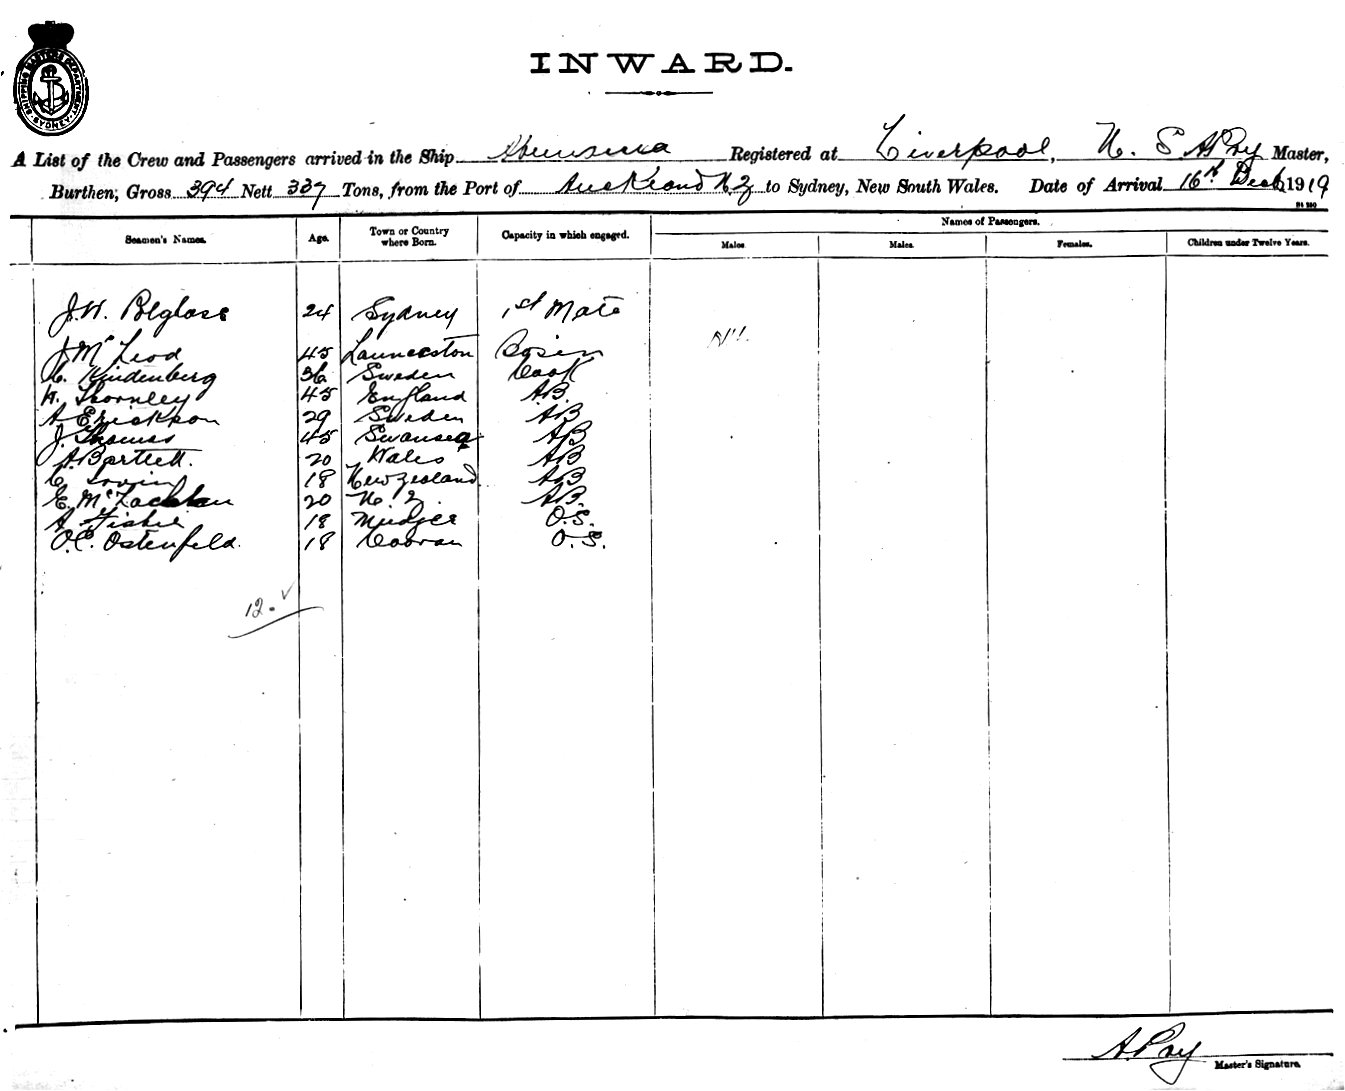 SHIPPING MASTERS DEPARTMENT SYDNEY
INWARD.
A List of the Crew and Passengers arrived in the Ship Registered at Liverpool, Master,
Burthen, Gross 394 Nett 337 Tons, from the Port of Auckland N Z to Sydney, New South Wales. Date of Arrival 16th Dec 1919
Seamen's Names. Age. Town or Country where Born. Capacity in which engaged. Names of Passengers.
Males Males. Females. Children under Twelve Years.
J. W. 24 Sydney 1st Mate
J Mc Leod 45 Launceston Bosun Nil
C. Kindenberg 36 Sweden Cook
W. Thornley 45 England A.B.
A Erickson 29 Sweden AB
J. Thomas 45 Swansea AB
A. Bartlett. 20 Wales AB
C. 18 New Zealand AB
E. McLachlan 20 N. Z. A.B.
A Fisher 18 Mudgee O.S.
O.C. Ostenfeld. 18 Cooran O.S.
12.
A. Roy
Master's Signature.